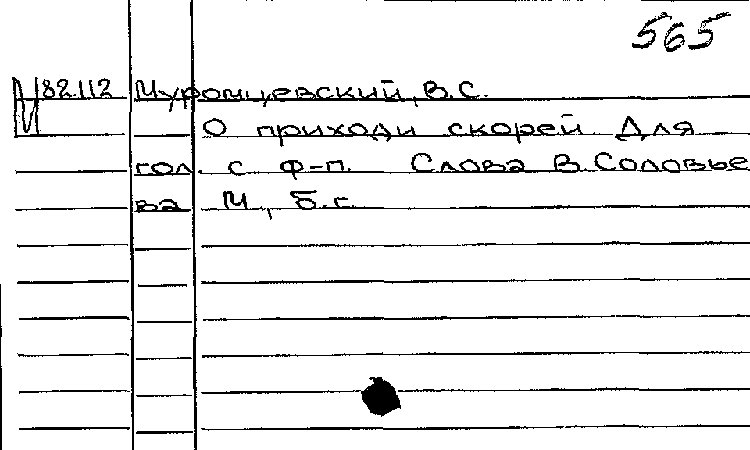 565
М82.112 Муромцевский, В.С.
О приходи скорей Для
гол. с ф-п. Слова В. Соловье
ва М, б.г.